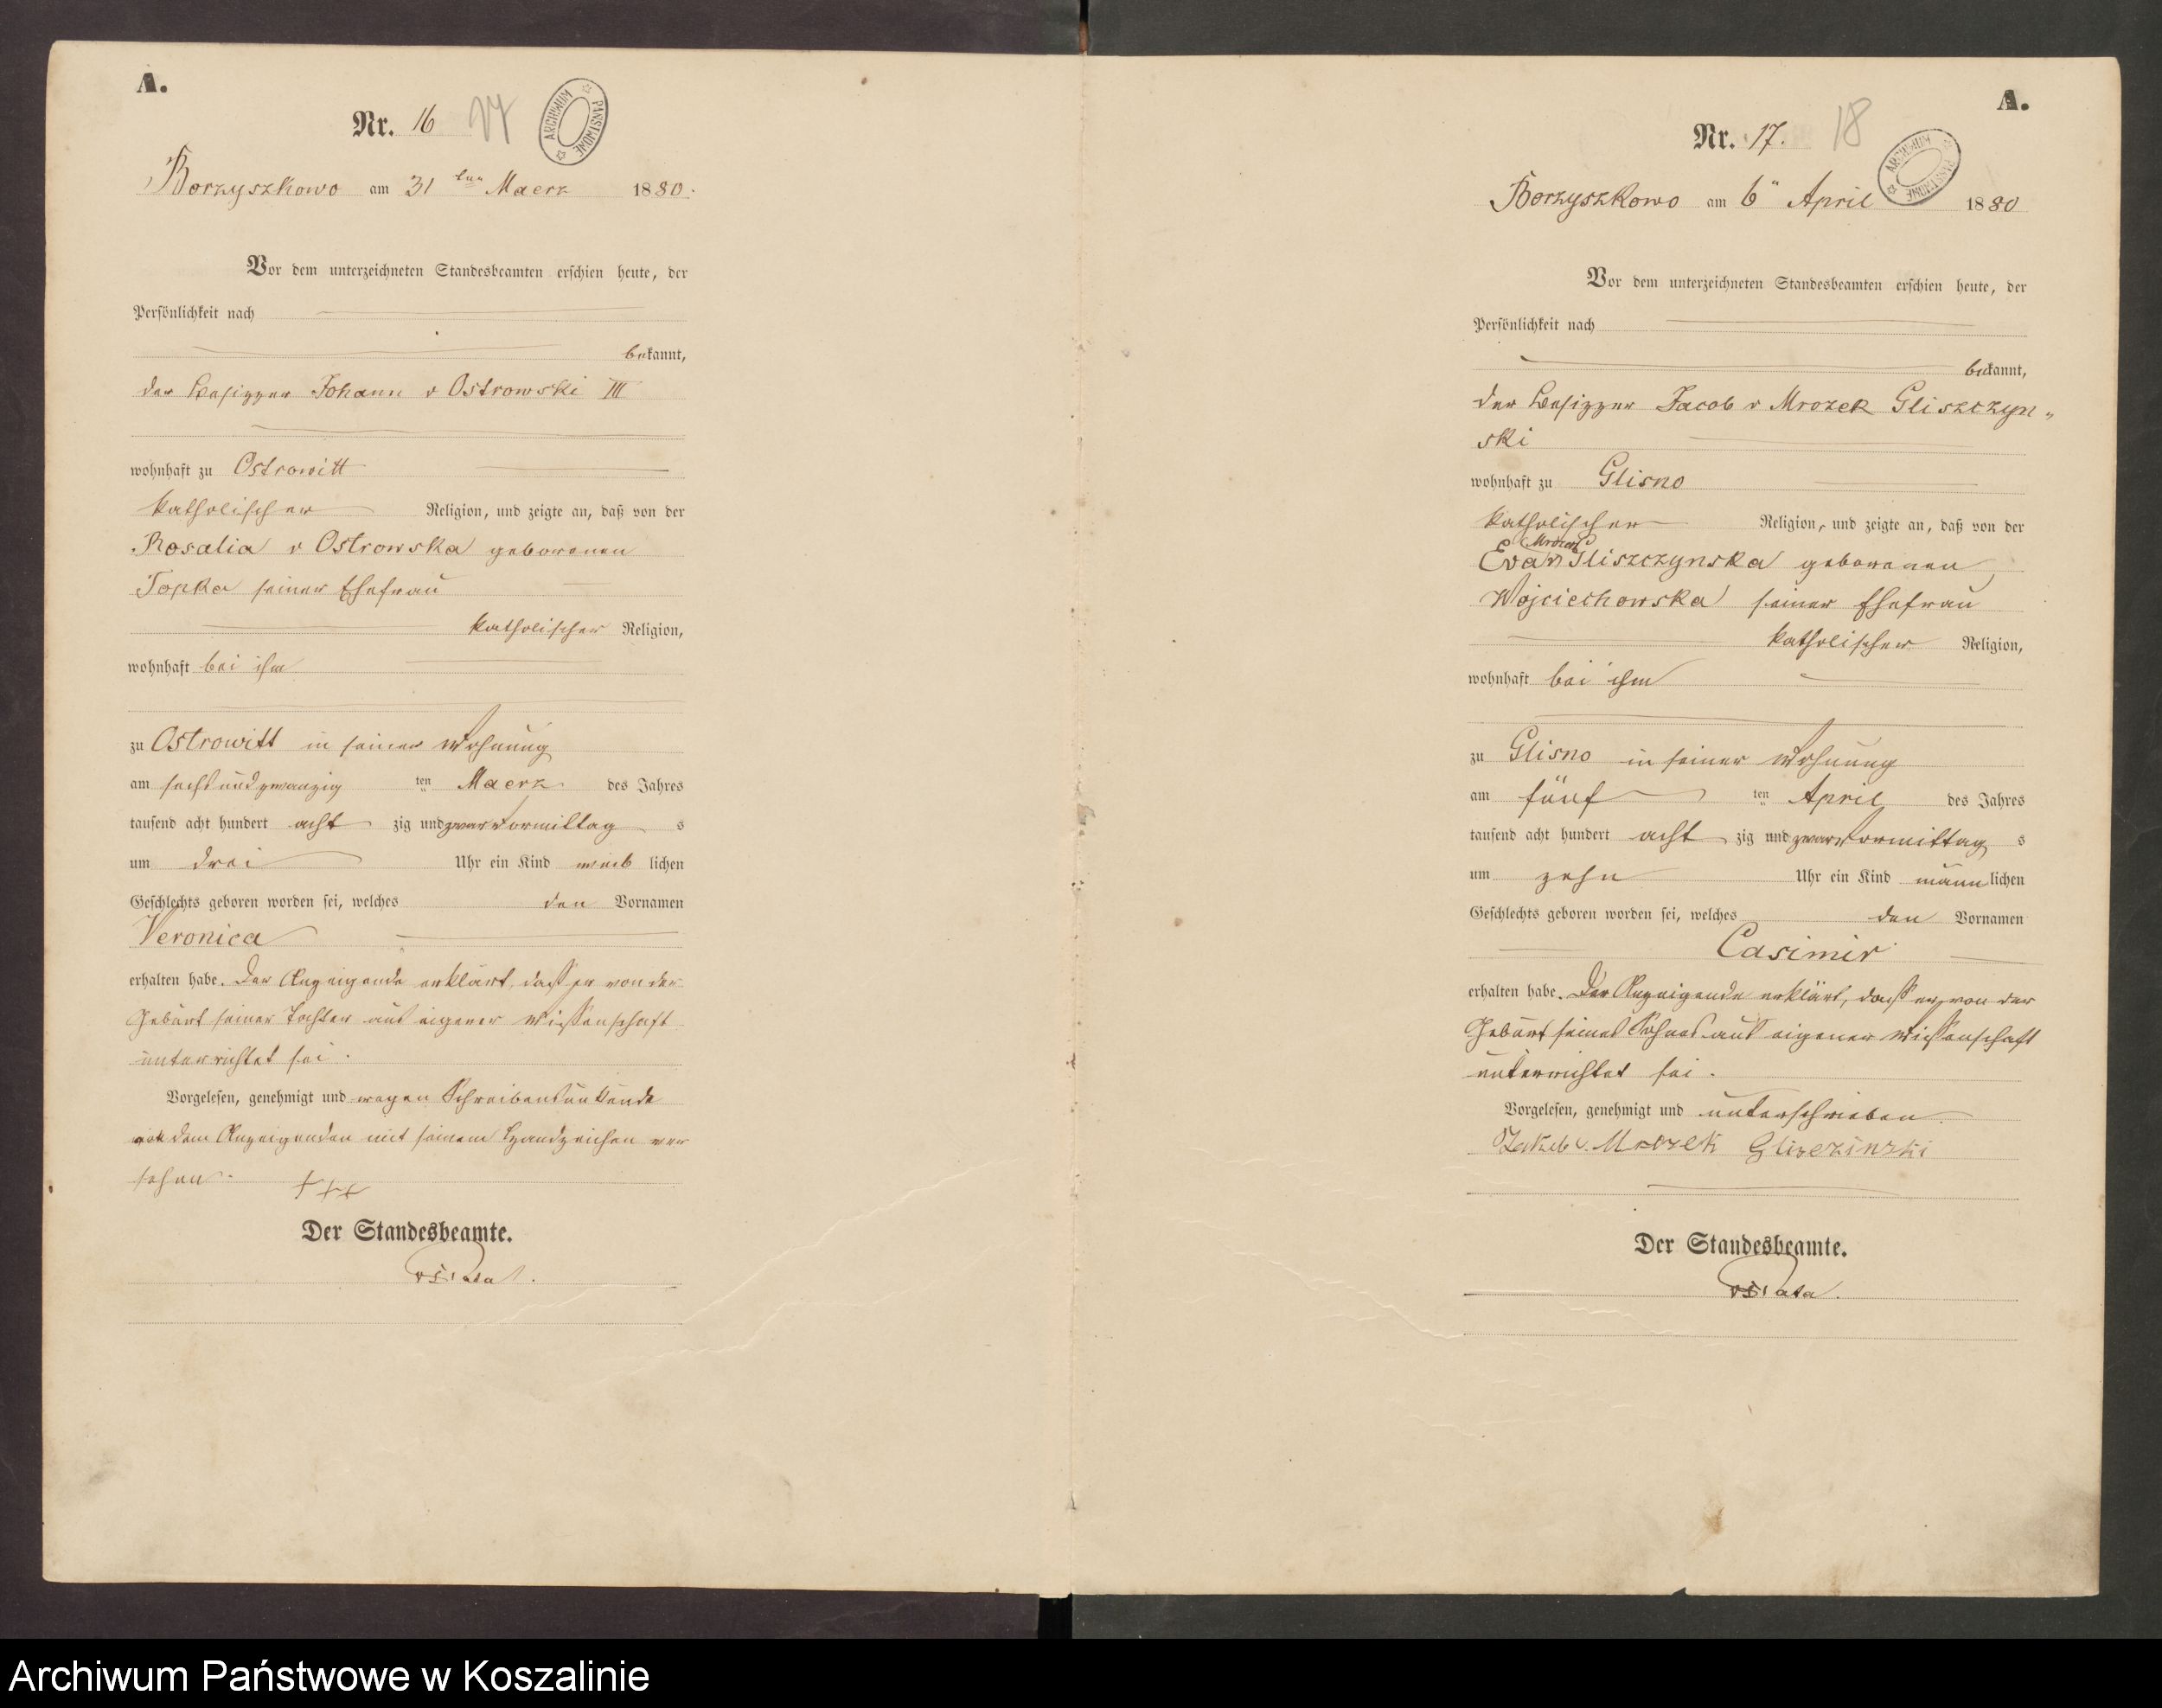 A.
Nr. 16 17
ARCHIWUM PAŃSTWOWE
Borzyszkowo am 31 ten Maerz 1880.
Vor dem unterzeichneten Standesbeamten erschien heute, der
Persönlichkeit nach
bekannt,
der Besitzer Johann v Ostrowski III
wohnhaft zu Ostrowitt
katholischer Religion, und zeigte an, daß von der
Rosalia v Ostrowska geborenen
Topka seiner Ehefrau
katholischer Religion,
wohnhaft bei ihm
zu Ostrowitt in seiner Wohnung
am sechsundzwanzig ten Maerz des Jahres
tausend acht hundert acht zig und zwar Vormittag s
um drei Uhr ein Kind weib lichen
Geschlechts geboren worden sei, welches den Vornamen
Veronica
erhalten habe. Der Anzeigende erklärt, dass er von der
Geburt seiner Tochter aus eigener Wissenschaft
unterrichtet sei.
Vorgelesen, genehmigt und wegen Schreibensunkunde
dem Anzeigenden mit seinem Handzeichen ver
sehen. +++
Der Standesbeamte.
A.
Nr. 17. 18
ARCHIWUM PAŃSTWOWE
Borzyszkowo am 6" April 1880
Vor dem unterzeichneten Standesbeamten erschien heute, der
Persönlichkeit nach
bekannt,
der Besitzer Jacob v Mrozek Gliszczyn„
ski
wohnhaft zu Glisno
katholischer Religion, und zeigte an, daß von der
Mrozek
Eva v Gliszczynska geborenen
Wojciechowska seiner Ehefrau
katholischer Religion,
wohnhaft bei ihm
zu Glisno in seiner Wohnung
am fünf ten April des Jahres
tausend acht hundert acht zig und zwar Vormittag s
um zehn Uhr ein Kind männ lichen
Geschlechts geboren worden sei, welches den Vornamen
Casimir
erhalten habe. Der Anzeigende erklärt, dass er von der
Geburt seines Sohnes aus eigener Wissenschaft
unterrichtet sei.
Vorgelesen, genehmigt und unterschrieben.
Jakob v. Mrozek Gliszezinzki
Der Standesbeamte.
Archiwum Państwowe w Koszalinie